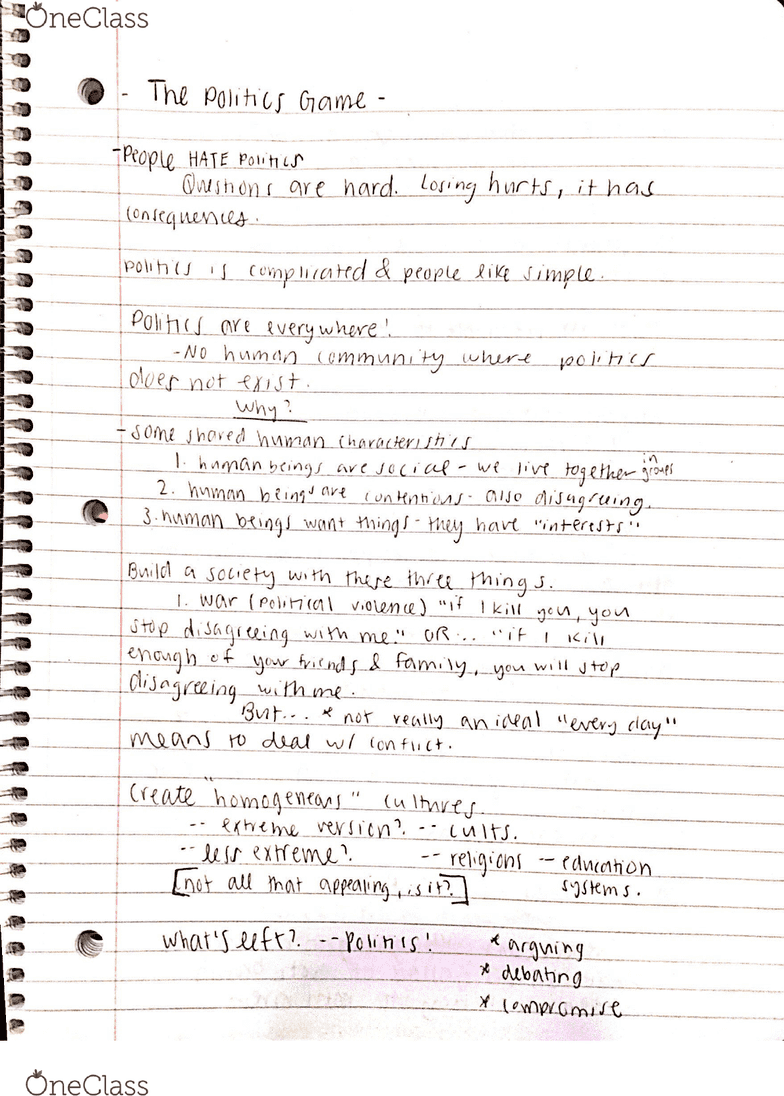 OneClass
- The Politics Game -
-People HATE Politics
Questions are hard. Losing hurts, it has
consequences.
politics is complicated & people like simple.
Politics are everywhere!
-No human community where politics
does not exist.
Why?
-some shared human characteristics
1. human beings are social - we live together in groups
2. human beings are contentions - also disagreeing.
3. human beings want things - they have "interests"
Build a society with these three things.
1. war (political violence) "if I kill you, you
stop disagreeing with me." OR... "if I kill
enough of your friends & family, you will stop
disagreeing with me.
But... * not really an ideal "every day"
means to deal w/ conflict.
Create "homogeneous" cultures.
-- extreme version? -- cults.
-- less extreme? -- religions - education
systems.
[not all that appealing, is it?]
what's left? -- politics! * arguing
* debating
* compromise
OneClass